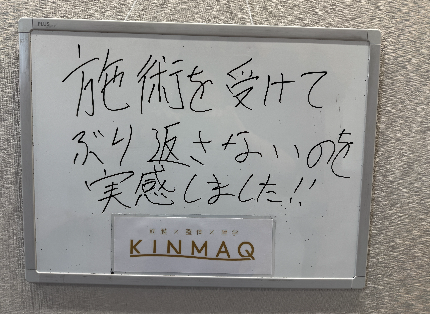 PLUS
施術を受けて
ぶり返さないのを
実感しました!!
KINMAQ